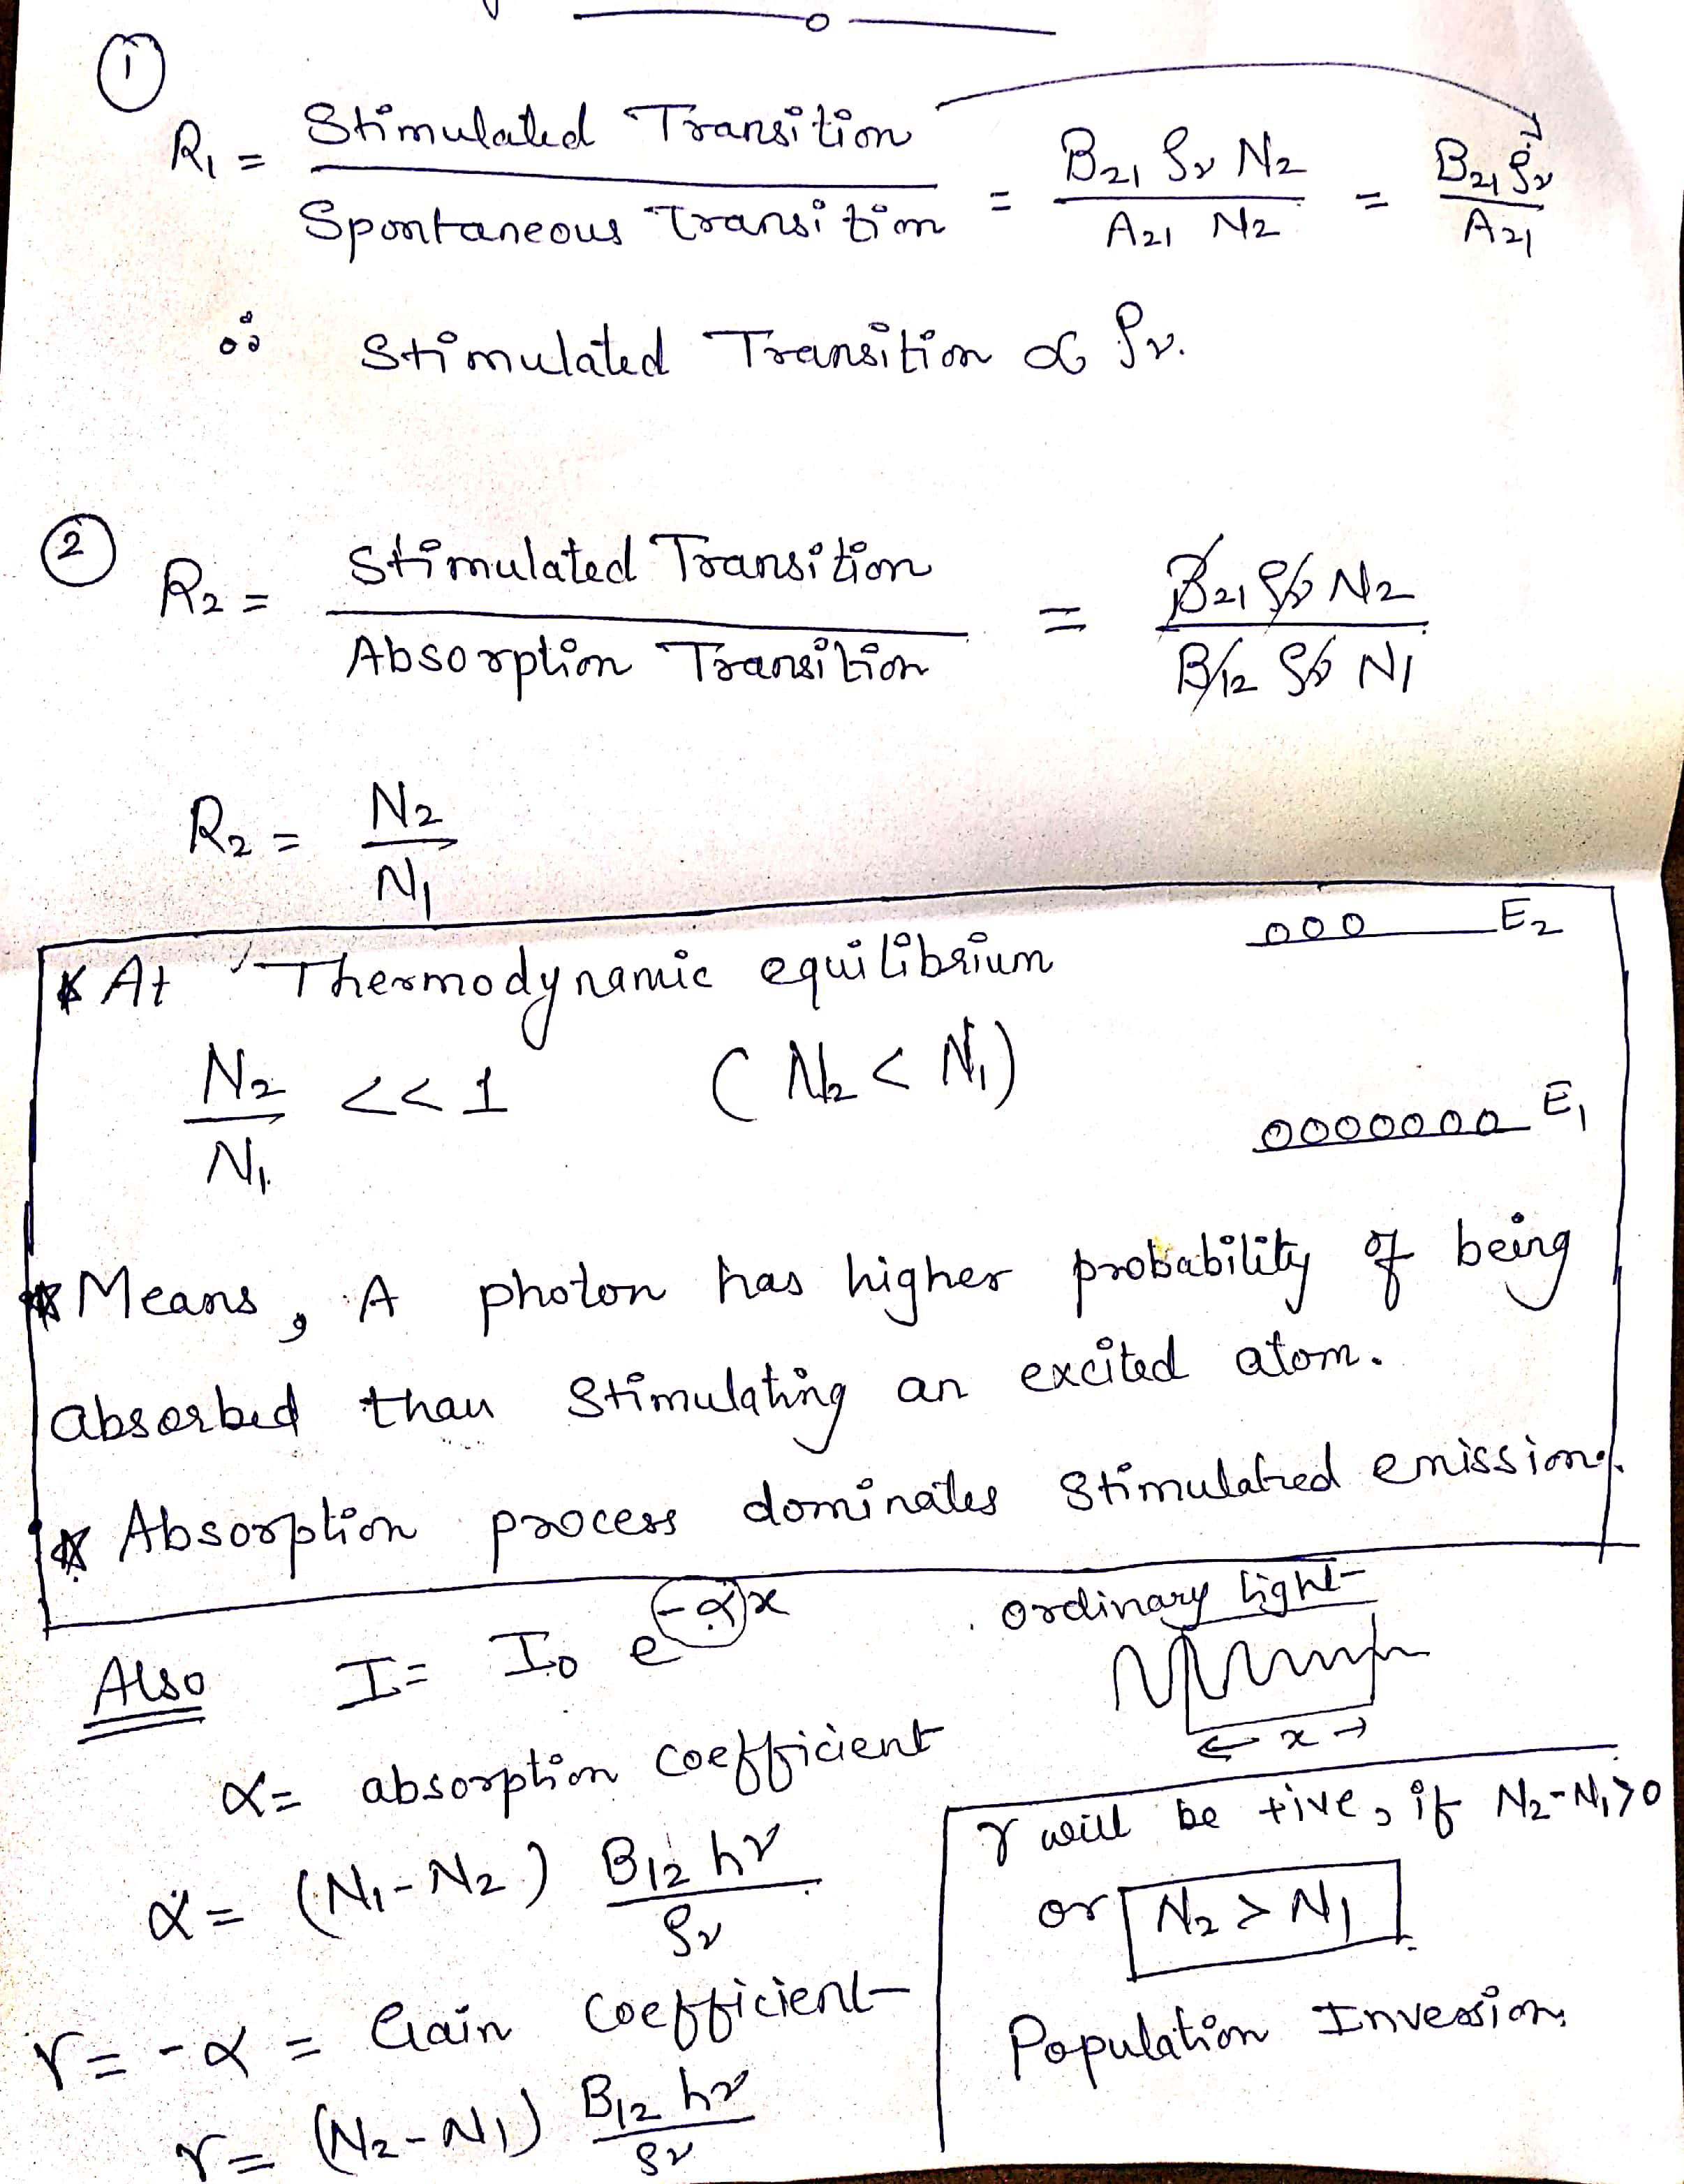 ①
R₁ = Stimulated Transition / Spontaneous Transition = B₂₁ ρν N₂ / A₂₁ N₂ = B₂₁ ρν / A₂₁
∴ Stimulated Transition ∝ ρν.
②
R₂ = Stimulated Transition / Absorption Transition = B₂₁ ρν N₂ / B₁₂ ρν N₁
R₂ = N₂ / N₁
* At Thermodynamic equilibrium
000 E₂
N₂ / N₁ << 1 (N₂ < N₁)
0000000 E₁
* Means, A photon has higher probability of being
absorbed than Stimulating an excited atom.
* Absorption process dominates Stimulated emission.
Also I = I₀ e^(-α)x
ordinary light
← x →
α = absorption coefficient
α = (N₁-N₂) B₁₂ hν / ρν
γ = -α = Gain Coefficient
γ = (N₂-N₁) B₁₂ hν / ρν
γ will be +ive, if N₂-N₁>0
or N₂ > N₁
Population Inversion.